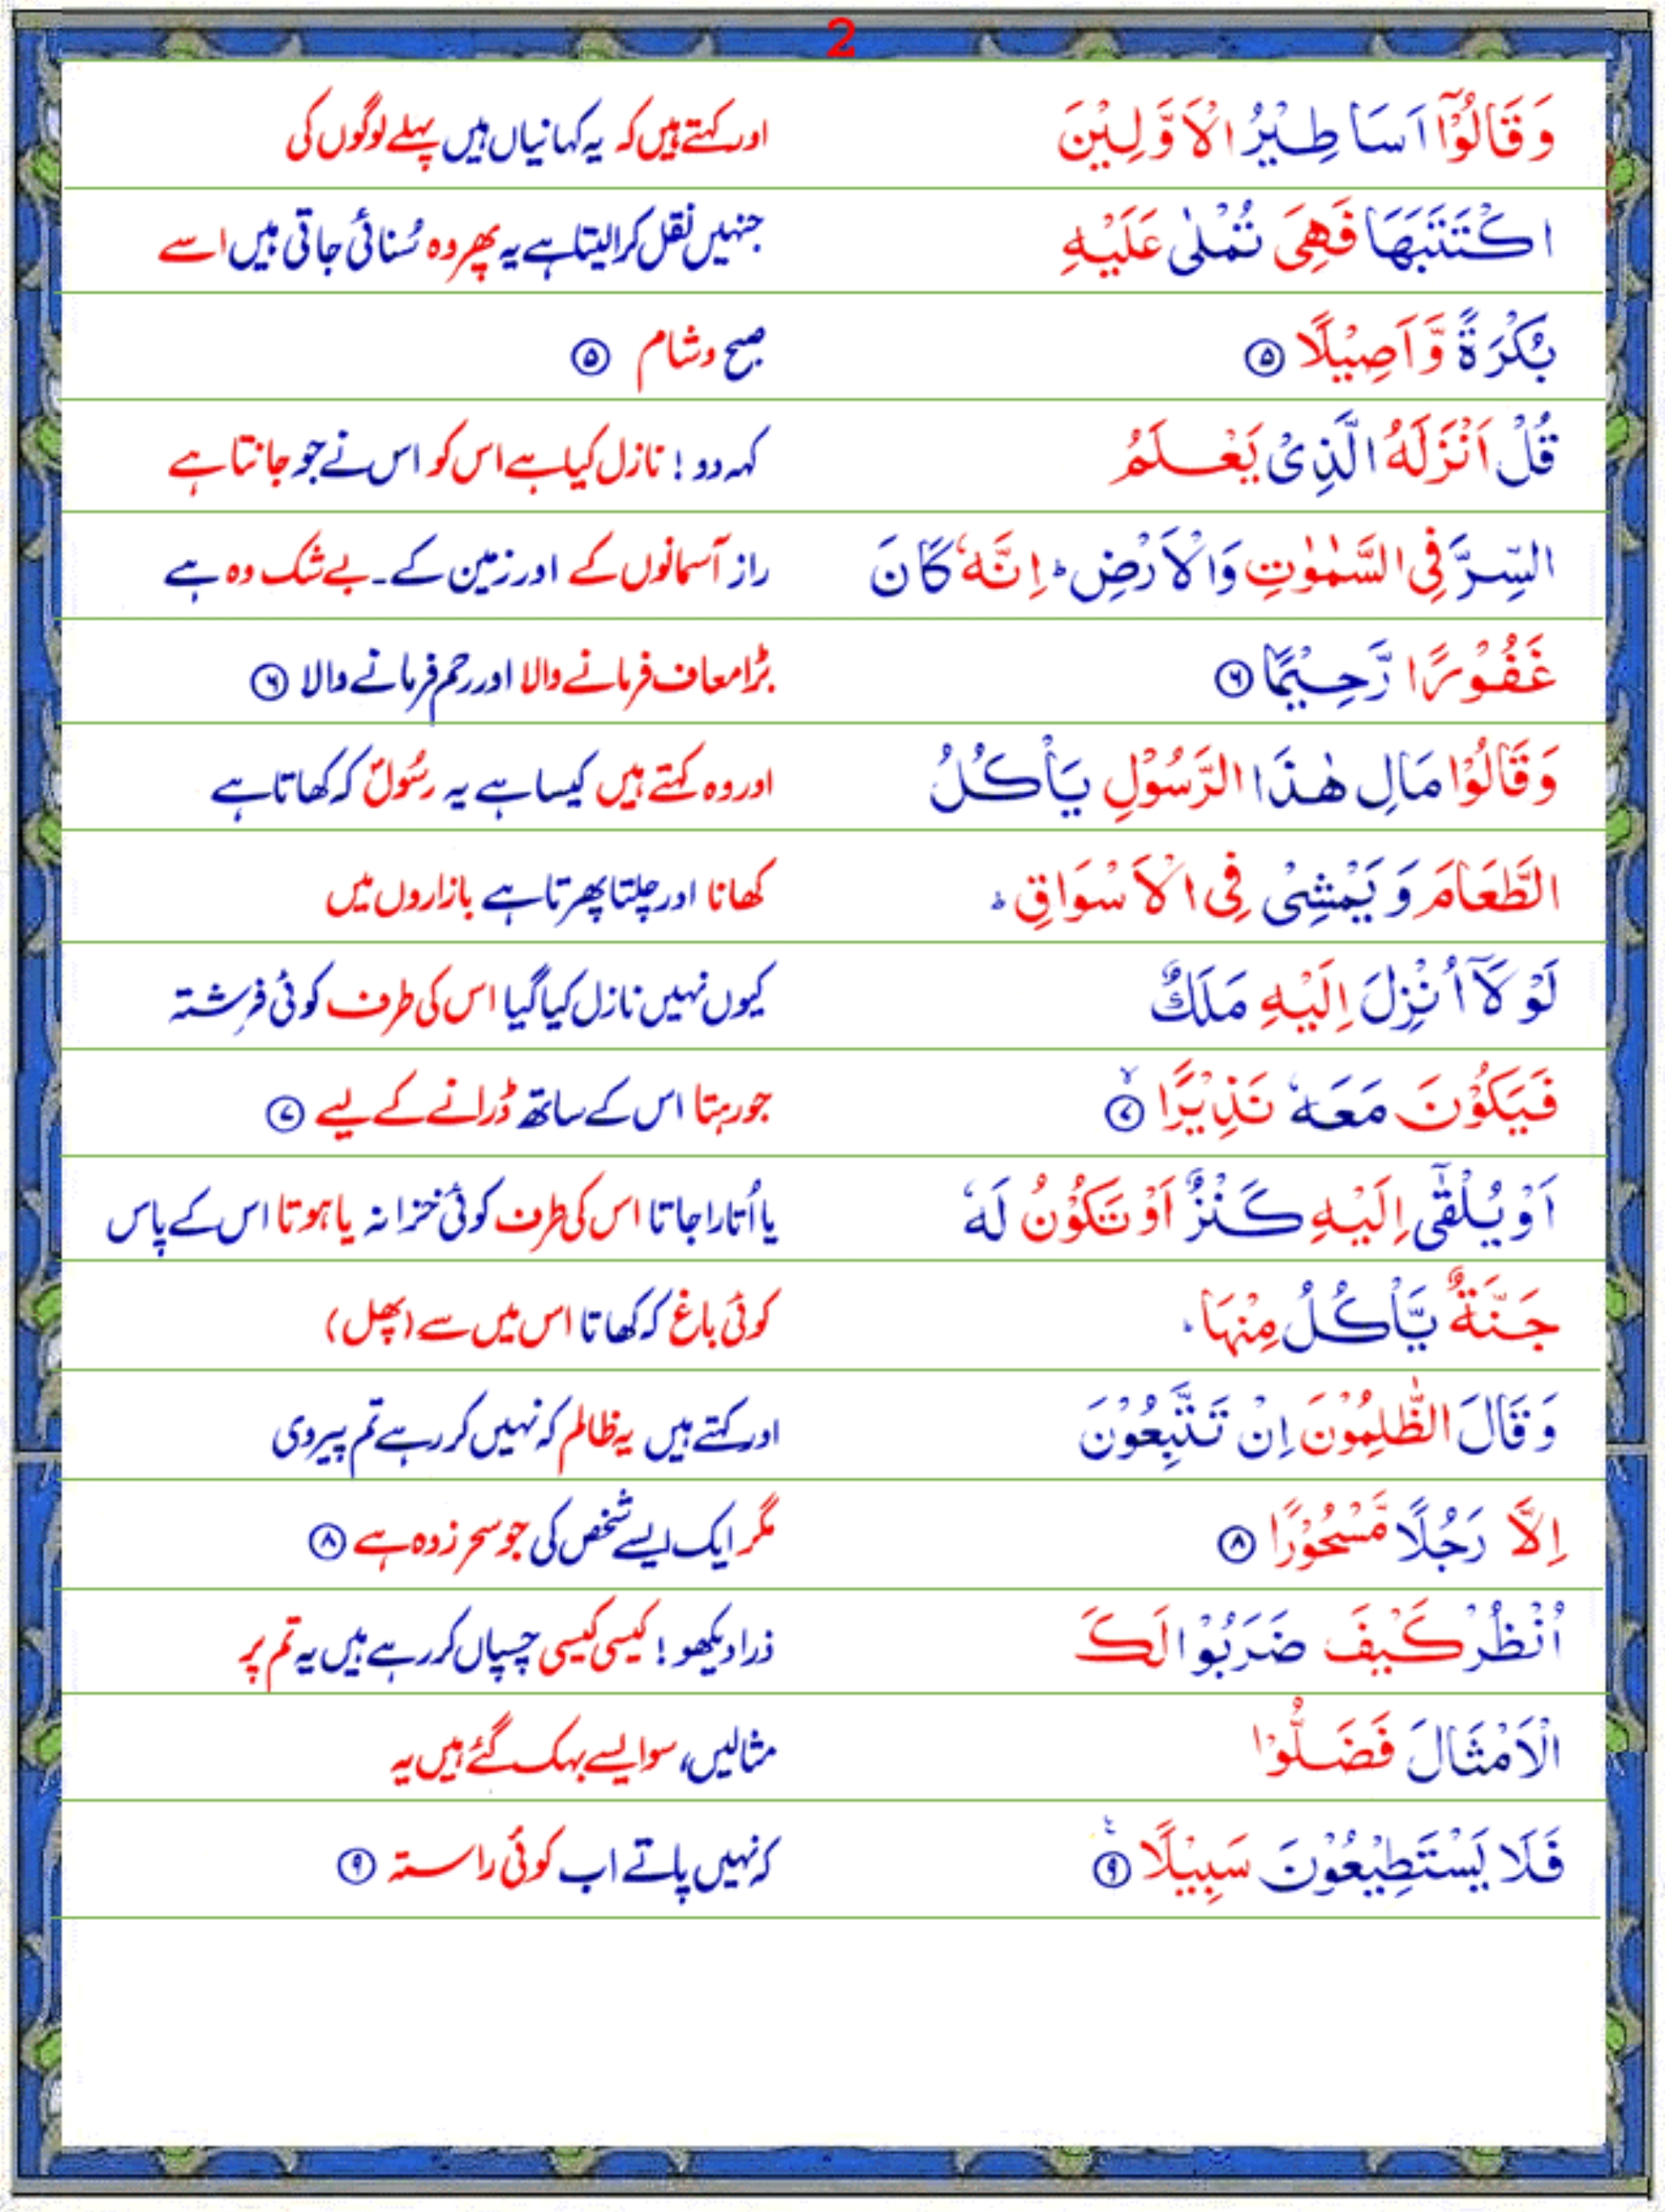 2
وَقَالُوْٓا اَسَاطِيْرُ الْاَوَّلِيْنَ اور کہتے ہیں کہ یہ کہانیاں ہیں پہلے لوگوں کی
اكْتَتَبَهَا فَهِىَ تُمْلٰى عَلَيْهِ جنہیں نقل کرا لیتا ہے یہ پھر وہ سُنائی جاتی ہیں اسے
بُكْرَةً وَّاَصِيْلًا ۵ صبح و شام ۵
قُلْ اَنْزَلَهُ الَّذِىْ يَعْلَمُ کہہ دو ! نازل کیا ہے اس کو اس نے جو جانتا ہے
السِّرَّ فِى السَّمٰوٰتِ وَالْاَرْضِ ؕ اِنَّهٗ كَانَ راز آسمانوں کے اور زمین کے۔ بے شک وہ ہے
غَفُوْرًا رَّحِيْمًا ۶ بڑا معاف فرمانے والا اور رحم فرمانے والا ۶
وَقَالُوْا مَالِ هٰذَا الرَّسُوْلِ يَاْكُلُ اور وہ کہتے ہیں کیسا ہے یہ رسُولؐ کہ کھاتا ہے
الطَّعَامَ وَيَمْشِىْ فِى الْاَسْوَاقِ ؕ کھانا اور چلتا پھرتا ہے بازاروں میں
لَوْلَاۤ اُنْزِلَ اِلَيْهِ مَلَكٌ کیوں نہیں نازل کیا گیا اس کی طرف کوئی فرشتہ
فَيَكُوْنَ مَعَهٗ نَذِيْرًا ۙ ۷ جو رہتا اس کے ساتھ ڈرانے کے لیے ۷
اَوْ يُلْقٰٓى اِلَيْهِ كَنْزٌ اَوْ تَكُوْنُ لَهٗ یا اُتارا جاتا اس کی طرف کوئی خزانہ یا ہوتا اس کے پاس
جَنَّةٌ يَّاْكُلُ مِنْهَا ؕ کوئی باغ کہ کھاتا اس میں سے (پھل)
وَقَالَ الظّٰلِمُوْنَ اِنْ تَتَّبِعُوْنَ اور کہتے ہیں یہ ظالم کہ نہیں کر رہے تم پیروی
اِلَّا رَجُلًا مَّسْحُوْرًا ۸ مگر ایک ایسے شخص کی جو سحر زدہ ہے ۸
اُنْظُرْ كَيْفَ ضَرَبُوْا لَكَ ذرا دیکھو ! کیسی کیسی چسپاں کر رہے ہیں یہ تم پر
الْاَمْثَالَ فَضَلُّوْا مثالیں، سو ایسے بہک گئے ہیں یہ
فَلَا يَسْتَطِيْعُوْنَ سَبِيْلًا ۹ کہ نہیں پاتے اب کوئی راستہ ۹